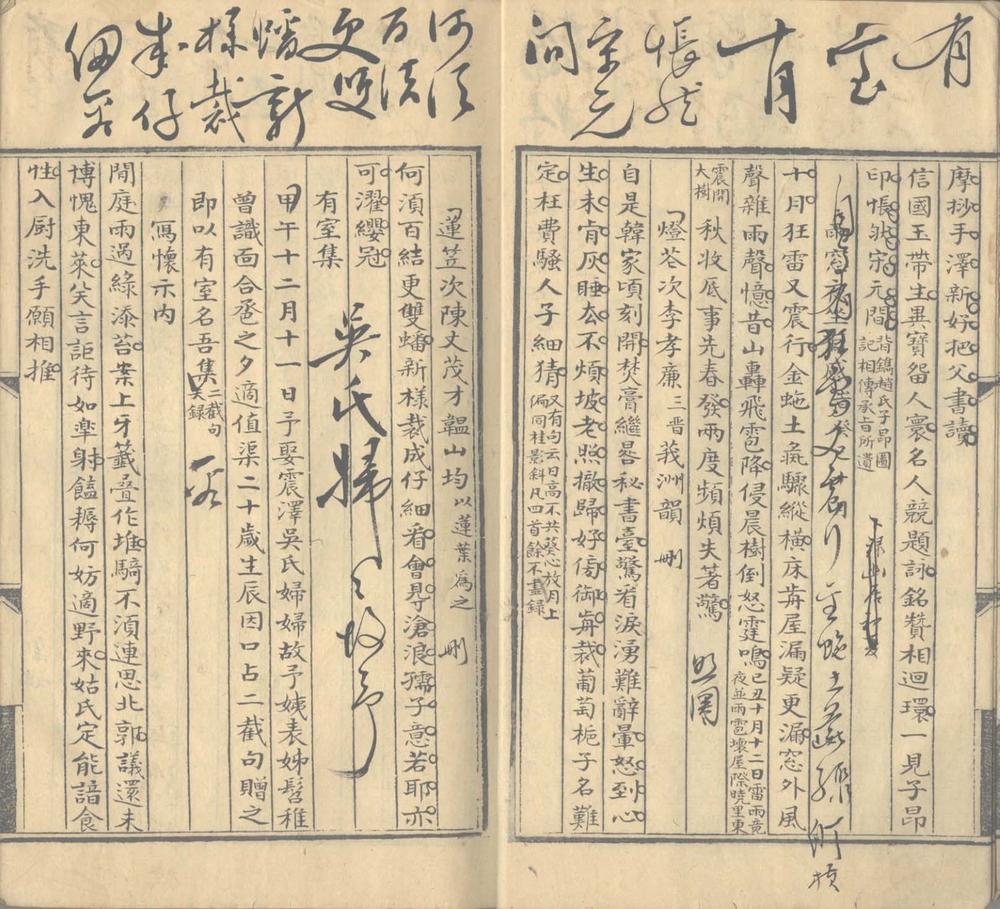 有
室
十月
悵然
宋元
間
摩挲手澤新好把父書讀
信國玉帶生異寶畱人寰名人競題詠銘贊相迴環一見子昂
印悵然宋元間背鐫趙氏子昂圖記相傳承旨所遺
十月狂雷又震行金虵土氣驟縱橫床牀屋漏疑更漏窓外風
聲雜雨聲憶昔山轟飛雹降侵晨樹倒怒霆鳴己丑十月十二日雷雨竟夜並雨雹壞屋際曉里東
震開大樹秋收底事先春發兩度頻煩失著驚
燈花次李孝廉三晋莪洲韻 刪
自是韓家頃刻開焚膏繼晷秘書臺驚看淚湧難辭暈怒到心
生未肯灰睡去不煩坡老照撤歸好傍御牀裁葡萄梔子名難
定枉費騷人子細猜又有句云日高不共葵心放月上偏同桂影斜凡四首餘不盡錄
何須
百結
更雙
蟠新
樣裁
成仔
細看
蓮笠次陳丈茂才韞山均以蓮葉為之 刪
何須百結更雙蟠新樣裁成仔細看會學滄浪孺子意若耶亦
可濯纓冠
有室集
甲午十二月十一日予娶震澤吳氏婦婦故予姨表姊髫稚
曾識面合巹之夕適值渠二十歲生辰因口占二截句贈之
即以有室名吾集二截句失錄
寫懷示内
閒庭雨過綠添苔案上牙籤疊作堆騎不須連思北郭議還未
博愧東萊笑言詎待如臯射饁耨何妨適野來姑氏定能諳食
性入厨洗手願相推